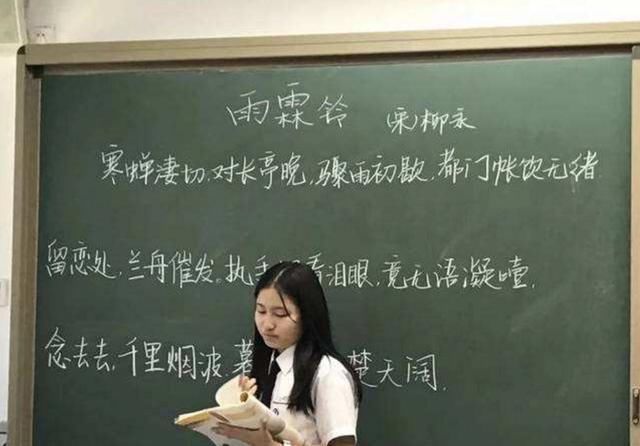 雨霖铃 (宋)柳永
寒蝉凄切,对长亭晚,骤雨初歇.都门帐饮无绪
留恋处,兰舟催发。执手看泪眼,竟无语凝噎.
念去去,千里烟波.暮楚天阔.